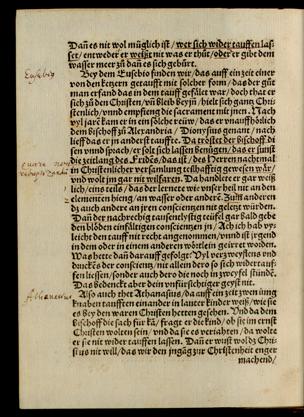 Dañ es nit wol müglich ist / wer sich wider tauffen las-
set / entweder er weißt nit was er thůt / oder er gibt dem
wasser meer zů dañ es sich gebürt.
Eusebiꝰ
Bey dem Eusebio finden wir / das auff ein zeit einer
von den ketzern getaufft nit solcher form / das der gůt
man erfand das es im tauff gefält war / doch that er
sich zů den Christen / vñ bleib beyn
stenlich / vnnd empfieng die sacrament mit jnen. Nach
vyl jaren kam er in ein solcher reüw / das er
dem bischoff zů Alexandria / Dionysius genant / nach
lieff das er jn anderst tauffte. Da tröstet der bischoff di
sen vnnd sprach / er solt sich lassen benügen / das er junst
die zeitlang des Frides / das ist / des Herren nachtmal
in Christenlicher versamlung teilhafftig gewesen wår /
vnd wolt jm gar nit wilfaren. Da handlet er gar weiß
lich / eins teils / das der lernete wie vnser heil nit an den
elementen hieng / an wasser oder anderē. Zum anderen
dz auch andere an jren conscientzen nit geletzt würden.
Dañ der nachrechig tausentlystig teüfel gar bald gebe
den blöden einfältigen conscientzen jn / Ach ich hab vy-
leicht den tauff nit recht angenommen / vnd ist jrgend
in dem oder in einem anderen wörtlein geirret worden.
Was hette dañ darauff gefolgt? Vyl verzweyflens vnd
duncks der conscientz, nit allein deren so sich widertauf
fen liessen / sonder auch deren die noch in zweyfel stündē.
Das bedenckt aber dein vnfürsichtiger geyst nit.
Athanasius
Also auch thet Athanasius / da auff ein zeit zwen jung
knaben taufften einander in lauter kinder weiß / wie sie
es bey den waren Christen hetten gesehen. Vnd da dem
bischoff die sach für kā / fragt er die kind / ob sie im ernst
Christen wolten sein / vnd da sie es verjahen / da wolt
er sie nit wider tauffen lassen. Dañ er wußt wol dz Chri-
stus nit will / das wir den jngāg zur Christenheit enger
machend /